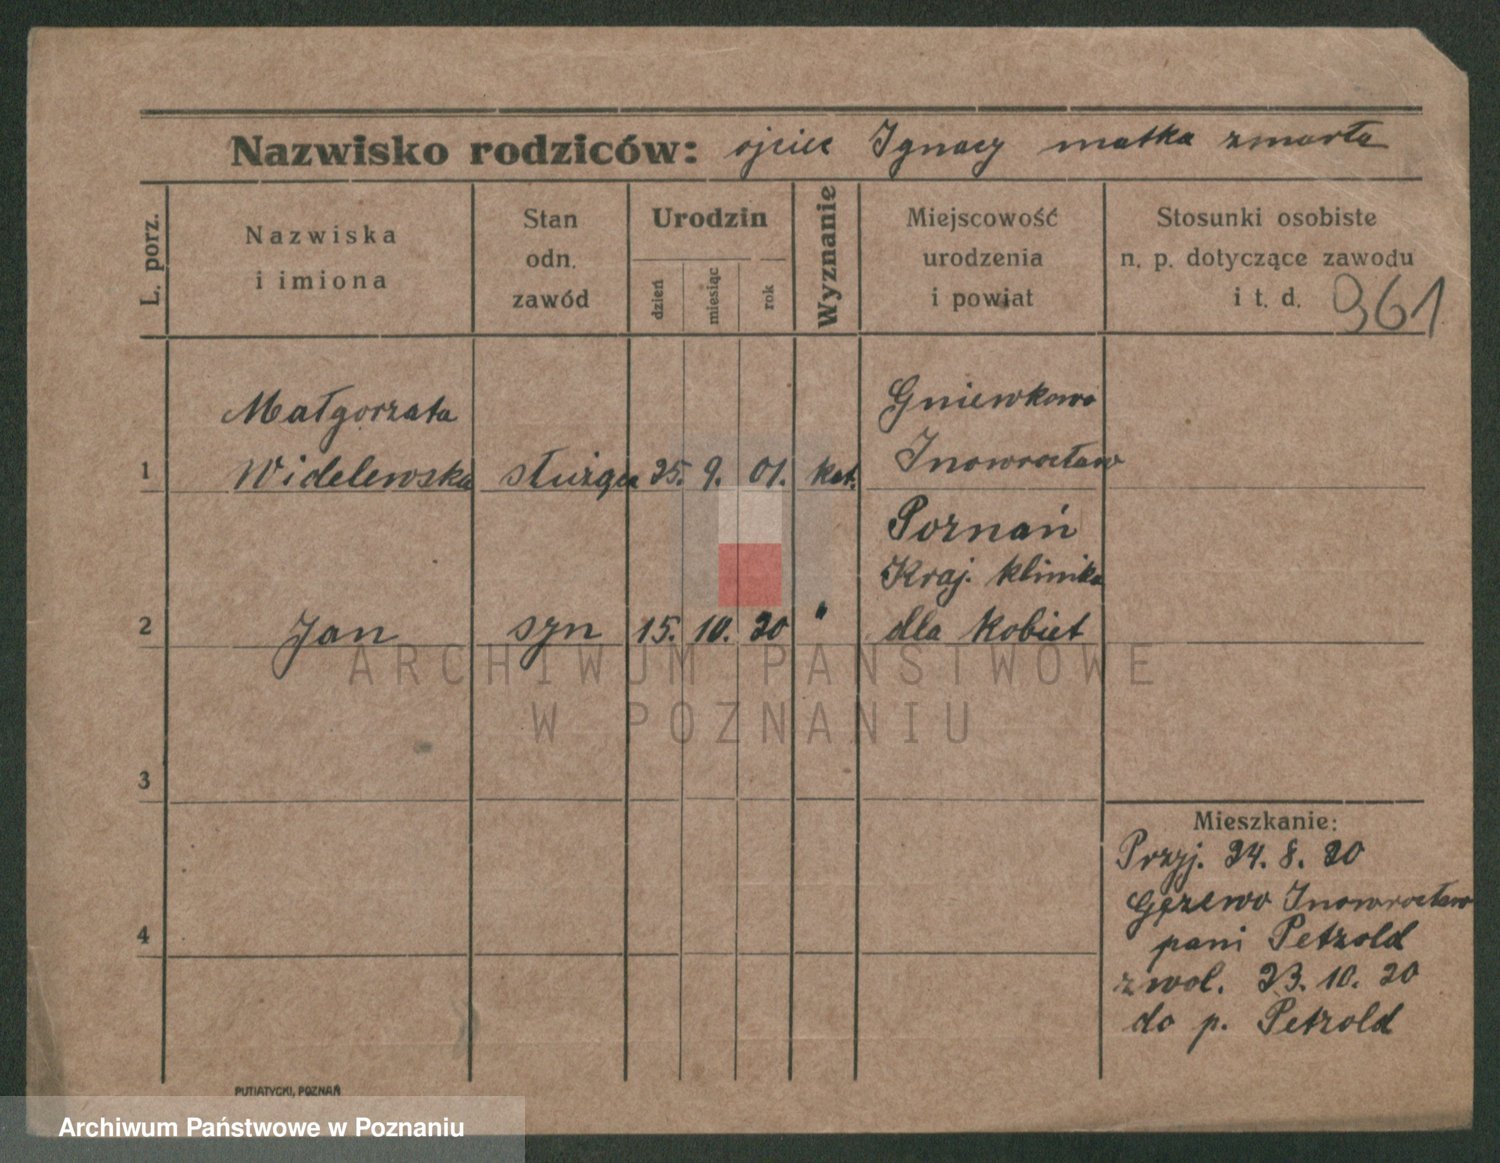 Nazwisko rodziców: ojciec Ignacy matka zmarła
L. porz.
Nazwiska
i imiona
Stan
odn.
zawód
Urodzin
dzień
miesiąc
rok
Wyznanie
Miejscowość
urodzenia
i powiat
Stosunki osobiste
n. p. dotyczące zawodu
i t. d.
961
Małgorzata
Gniewkowo
1 Widelewska służąca 25. 9. 01. kat. Inowrocław
Poznań
Kraj. klinika
2 Jan syn 15. 10. 20 " dla kobiet
3
4
Mieszkanie:
Przyj. 24. 8. 20
Inowrocław
pani Petzold
zwol. 23. 10. 20
do p. Petzold
PUTIATYCKI, POZNAŃ
ARCHIWUM PAŃSTWOWE
W POZNANIU
Archiwum Państwowe w Poznaniu